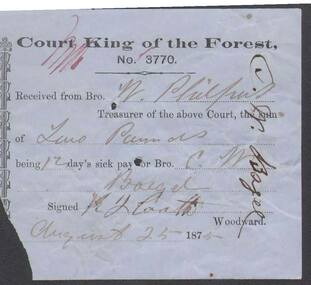 Court King of the Forest,
No. 3770.
Received from Bro. W.
Treasurer of the above Court, the sum
of Two Pounds
being 12 day's sick pay for Bro. C W
Boegel
Signed
Woodward.
August 25 187